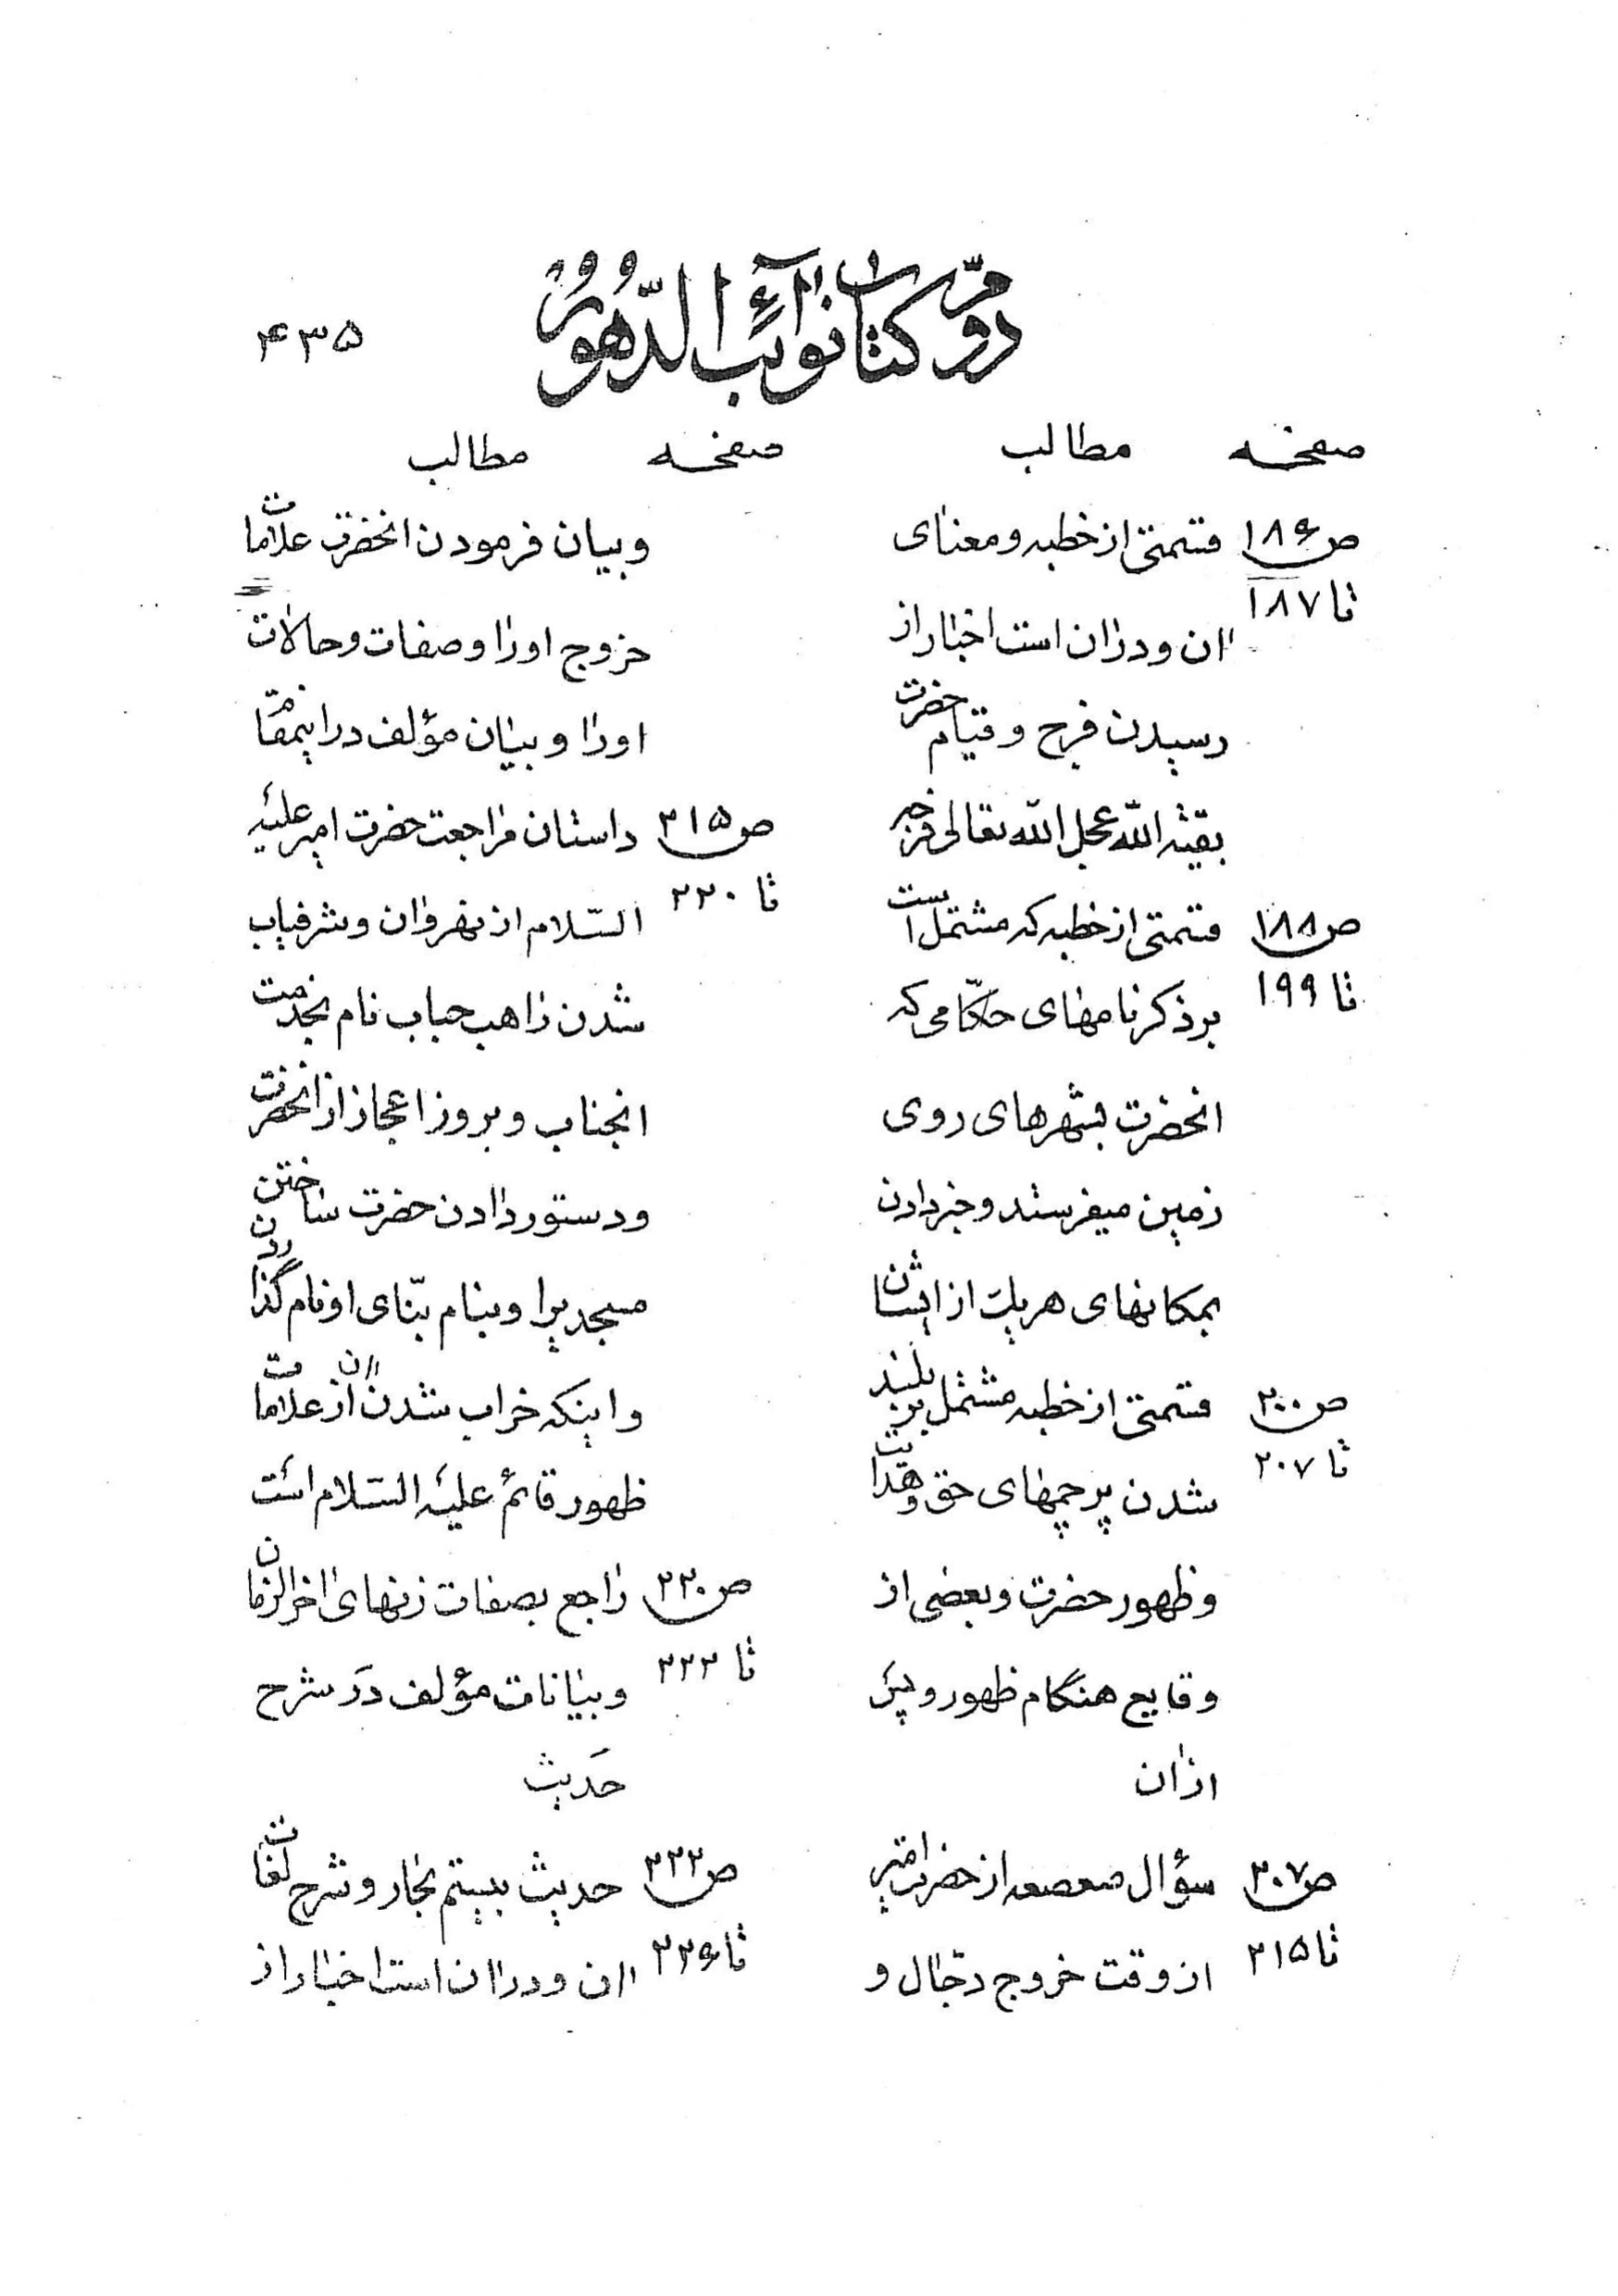 دوّم کتاب نوآئب الدّهور
۴۳۵
صفحه مطالب
ص۱۸۶ قسمتی از خطبه و معنای
تا ۱۸۷ ان و دران است اخبار از
رسیدن فرج و قیام حضرت
بقیة الله عجل الله تعالی فرجه
ص۱۸۸ قسمتی از خطبه که مشتمل است
تا ۱۹۹ بر ذکر نامهای حکّامی که
انحضرت بشهرهای روی
زمین میفرستد و خبر دادن
بمکانهای هریک از ایشان
ص۲۰۰ قسمتی از خطبه مشتمل بر بلند
تا ۲۰۷ شدن پرچمهای حق و هدایت
و ظهور حضرت و بعضی از
وقایع هنگام ظهور و پس
از ان
ص۲۰۷ سؤال صعصعه از حضرت امیر
تا ۲۱۵ از وقت خروج دجّال و
صفحه مطالب
و بیان فرمودن انحضرت علامات
خروج اورا و صفات و حالات
اورا و بیان مؤلف در اینمقام
ص۲۱۵ داستان مراجعت حضرت امیر علیه
تا ۲۲۰ السّلام از نهروان و شرفیاب
شدن راهب حباب نام بخدمت
انجناب و بروز اعجاز از انحضرت
و دستور دادن حضرت ساختن
مسجدیرا و بنام بنّای او نام گذاردن
و اینکه خراب شدن ان از علامات
ظهور قائم علیه السّلام است
ص۲۲۰ راجع بصفات زنهای اخرالزمان
تا ۲۲۲ و بیانات مؤلف در شرح
حدیث
ص۲۲۲ حدیث بیستم بحار و شرح لغات
تا ۲۲۶ ان و دران است اخبار از